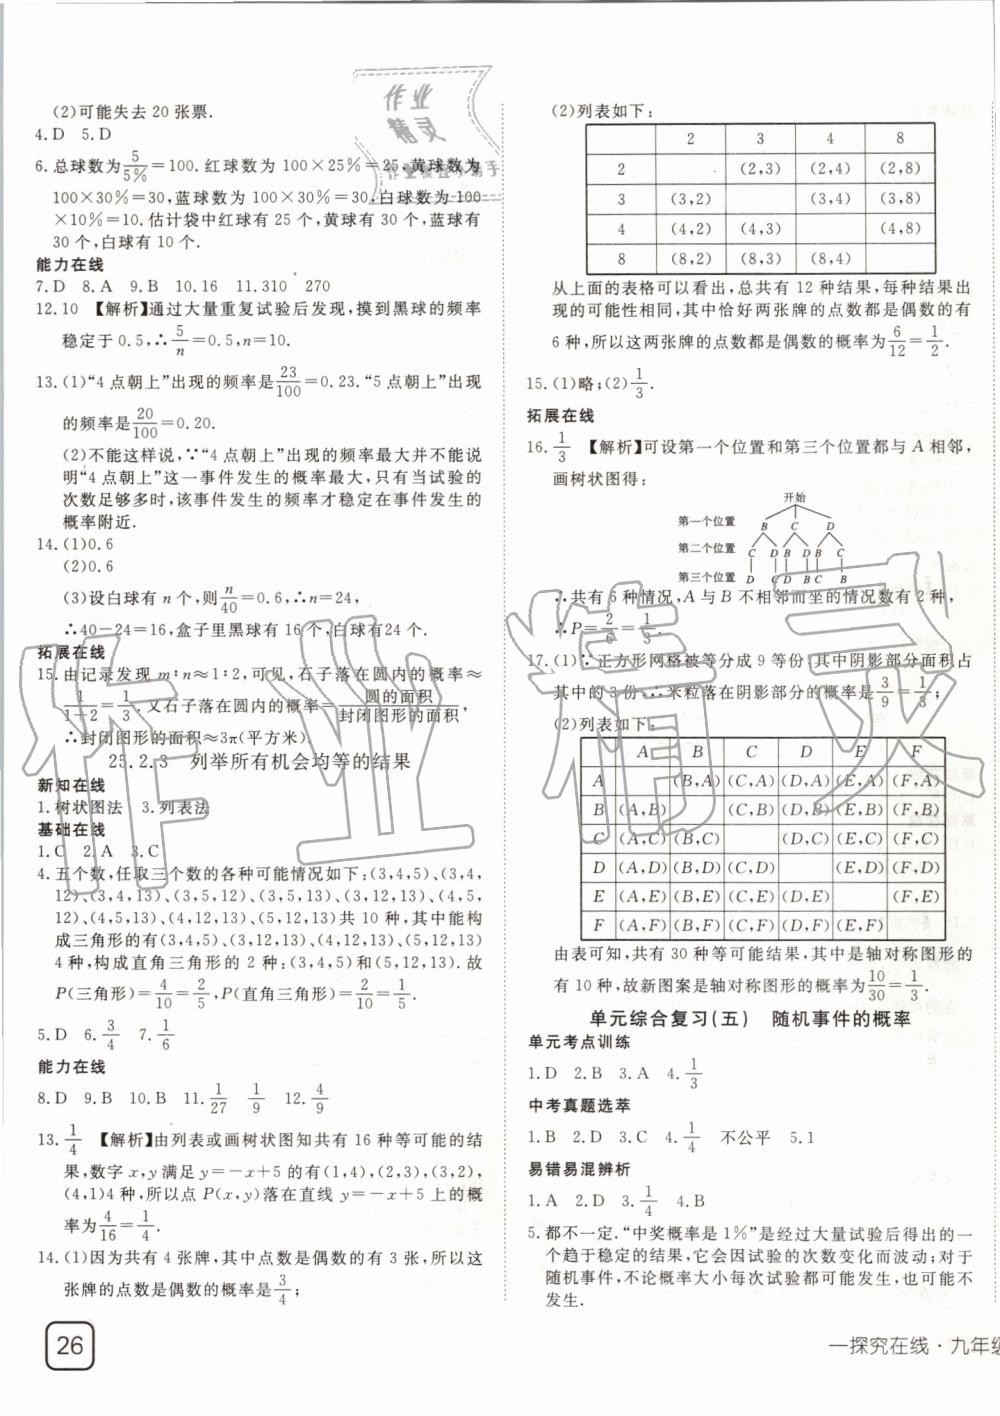 (2)可能失去 20 张票.
4. D  5. D
6. 总球数为5/5%=100. 红球数为 100×25%=25, 黄球数为
100×30%=30, 蓝球数为 100×30%=30, 白球数为 100
×10%=10. 估计袋中红球有 25 个, 黄球有 30 个, 蓝球有
30 个, 白球有 10 个.
能力在线
7. D  8. A  9. B  10. 16  11. 310  270
12. 10 【解析】通过大量重复试验后发现, 摸到黑球的频率
稳定于 0.5, ∴5/n=0.5, n=10.
13. (1)“4 点朝上”出现的频率是23/100=0.23. “5 点朝上”出现
的频率是20/100=0.20.
(2)不能这样说, ∵“4 点朝上”出现的频率最大并不能说
明“4 点朝上”这一事件发生的概率最大, 只有当试验的
次数足够多时, 该事件发生的频率才稳定在事件发生的
概率附近.
14. (1)0.6
(2)0.6
(3)设白球有 n 个, 则n/40=0.6, ∴n=24,
∴40-24=16, 盒子里黑球有 16 个, 白球有24 个.
拓展在线
15. 由记录发现 m:n≈1:2, 可见, 石子落在圆内的概率≈
1/(1+2)=1/3, 又石子落在圆内的概率=圆的面积/封闭图形的面积,
∴封闭图形的面积≈3π(平方米).
25.2.3 列举所有机会均等的结果
新知在线
1. 树状图法  3. 列表法
基础在线
1. C  2. A  3. C
4. 五个数, 任取三个数的各种可能情况如下:(3,4,5)、(3,4,
12)、(3,4,13)、(3,5,12)、(3,5,13)、(3,12,13)、(4,5,
12)、(4,5,13)、(4,12,13)、(5,12,13)共 10 种, 其中能构
成三角形的有(3,4,5)、(3,12,13)、(4,12,13)、(5,12,13)
4 种, 构成直角三角形的 2 种:(3,4,5)和(5,12,13). 故
P(三角形)=4/10=2/5, P(直角三角形)=2/10=1/5.
5. D  6. 3/4  7. 1/6
能力在线
8. D  9. B  10. B  11. 1/27  1/9  12. 4/9
13. 1/4 【解析】由列表或画树状图知共有 16 种等可能的结
果, 数字 x, y 满足 y=-x+5 的有(1,4), (2,3), (3,2),
(4,1)4 种, 所以点 P(x, y)落在直线 y=-x+5 上的概
率为4/16=1/4.
14. (1)因为共有 4 张牌, 其中点数是偶数的有 3 张, 所以这
张牌的点数是偶数的概率是3/4;
26
(2)列表如下:
2  3  4  8
2  (2,3)  (2,4)  (2,8)
3  (3,2)  (3,4)  (3,8)
4  (4,2)  (4,3)  (4,8)
8  (8,2)  (8,3)  (8,4)
从上面的表格可以看出, 总共有 12 种结果, 每种结果出
现的可能性相同, 其中恰好两张牌的点数都是偶数的有
6 种, 所以这两张牌的点数都是偶数的概率为6/12=1/2.
15. (1)略; (2)1/3.
拓展在线
16. 1/3 【解析】可设第一个位置和第三个位置都与 A 相邻,
画树状图得:
开始
第一个位置  B  C  D
第二个位置  C  D  B  D  B  C
第三个位置  D  C  D  B  C  B
∴共有 6 种情况, A 与 B 不相邻而坐的情况数有 2 种,
∴P=2/6=1/3.
17. (1)∵正方形网格被等分成 9 等份, 其中阴影部分面积占
其中的 3 份, ∴米粒落在阴影部分的概率是3/9=1/3;
(2)列表如下:
A  B  C  D  E  F
A  (B,A)  (C,A)  (D,A)  (E,A)  (F,A)
B  (A,B)  (C,B)  (D,B)  (E,B)  (F,B)
C  (A,C)  (B,C)  (D,C)  (E,C)  (F,C)
D  (A,D)  (B,D)  (C,D)  (E,D)  (F,D)
E  (A,E)  (B,E)  (C,E)  (D,E)  (F,E)
F  (A,F)  (B,F)  (C,F)  (D,F)  (E,F)
由表可知, 共有 30 种等可能结果, 其中是轴对称图形的
有 10 种, 故新图案是轴对称图形的概率为10/30=1/3.
单元综合复习(五)  随机事件的概率
单元考点训练
1. D  2. B  3. A  4. 1/3
中考真题选萃
1. B  2. D  3. C  4. 1/4  不公平  5. 1
易错易混辨析
1. A  2. D  3. 1/4  4. B
5. 都不一定. “中奖概率是 1%”是经过大量试验后得出的一
个趋于稳定的结果, 它会因试验的次数变化而波动; 对于
随机事件, 不论概率大小每次试验都可能发生, 也可能不
发生.
—探究在线·九年级
作业
精灵
作业精灵